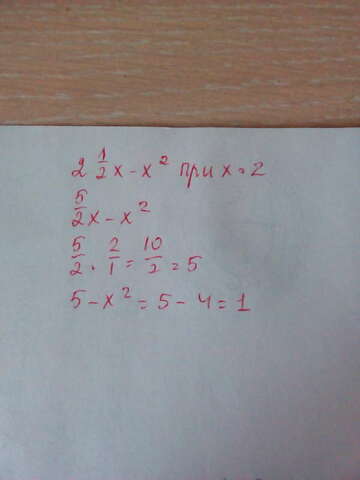 2 1/2 x - x² при x = 2
5/2 x - x²
5/2 · 2/1 = 10/2 = 5
5 - x² = 5 - 4 = 1